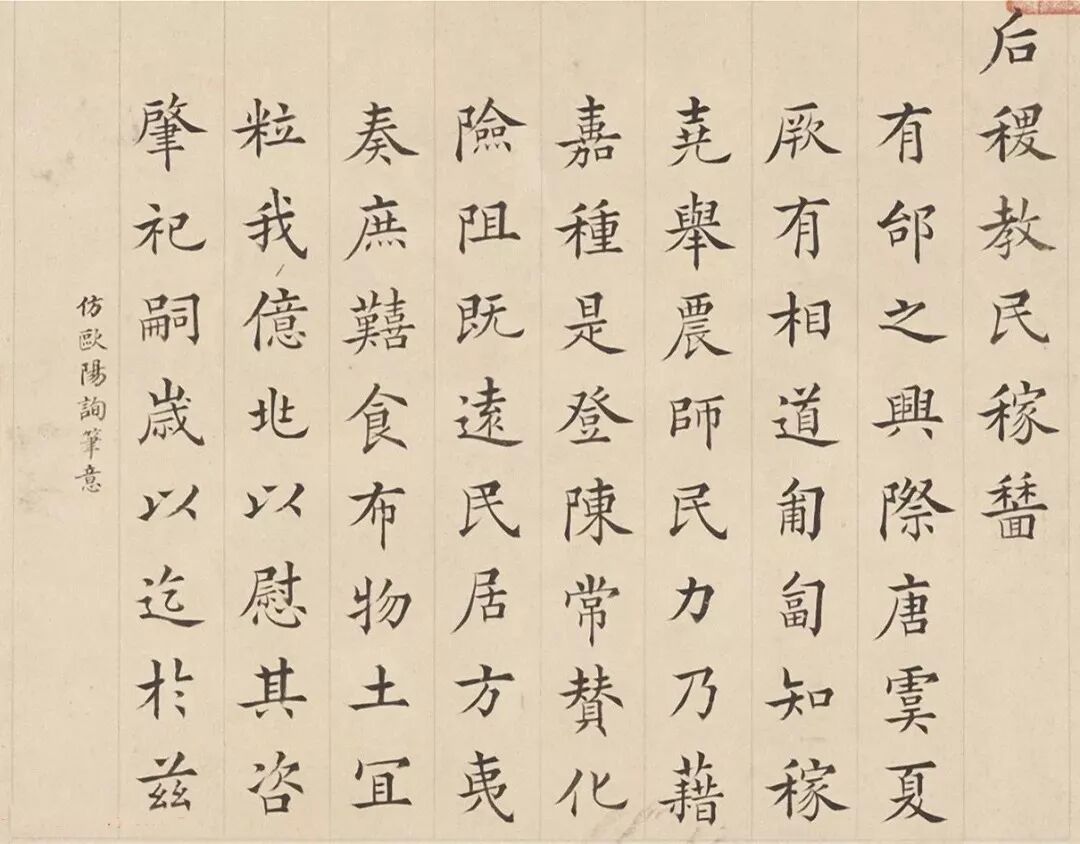 后稷教民稼穡
有邰之興際唐虞夏
厥有相道匍匐知稼
堯舉農師民力乃藉
嘉種是登陳常贊化
險阻既遠民居方夷
奏庶囏食布物土宜
粒我億兆以慰其咨
肇祀嗣歲以迄於茲
仿歐陽詢筆意